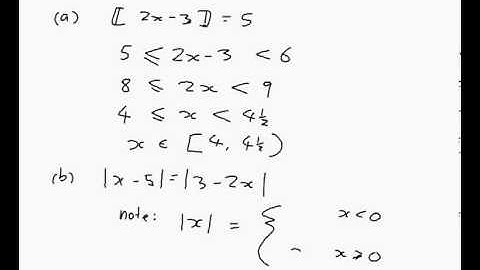 (a) ⟦ 2x-3 ⟧ = 5
5 ⩽ 2x-3 < 6
8 ⩽ 2x < 9
4 ⩽ x < 4½
x ϵ [4, 4½)
(b) |x-5|=|3-2x|
note: |x| = {
x<0
x⩾0